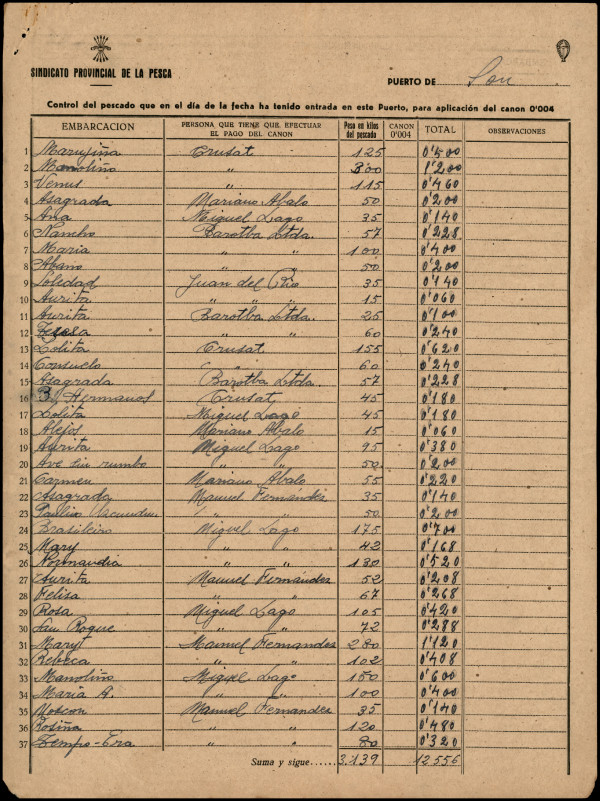 SINDICATO PROVINCIAL DE LA PESCA
PUERTO DE Son
Control del pescado que en el día de la fecha ha tenido entrada en este Puerto, para aplicación del canon 0'004
EMBARCACION PERSONA QUE TIENE QUE EFECTUAR EL PAGO DEL CANON Peso en kilos del pescado CANON 0'004 TOTAL OBSERVACIONES
1 Marujiña Crusat 125 0'500
2 Manoliño " 300 1'200
3 Venus " 115 0'460
4 Asagrada Mariano Abalo 50 0'200
5 Ana Miguel Lago 35 0'140
6 Nancho Barotba Ltda. 57 0'228
7 Maria " " 100 0'400
8 Abano " " 50 0'200
9 Soledad Juan del Rio 35 0'140
10 Aurita " " " 15 0'060
11 Aurita Barotba Ltda. 25 0'100
12 " " 60 0'240
13 Lolita Crusat. 155 0'620
14 Consuelo " 60 0'240
15 Asagrada Barotba Ltda. 57 0'228
16 3 Hermanos Crusat 45 0'180
17 Lolita Miguel Lago 45 0'180
18 Alejos Mariano Abalo 15 0'060
19 Aurita Miguel Lago 95 0'380
20 Ave sin rumbo " " 50 0'200
21 Carmen Mariano Abalo 55 0'220
22 Asagrada Manuel Fernandez 35 0'140
23 Paulino " " 50 0'200
24 Brasileiro Miguel Lago 175 0'700
25 Mary " " 42 0'168
26 Normandia " " 130 0'520
27 Aurita Manuel Fernández 52 0'208
28 Felisa " " 67 0'268
29 Rosa Miguel Lago 105 0'420
30 San Roque " " 72 0'288
31 Mary Manuel Fernandez 280 1'120
32 Rebeca " " 102 0'408
33 Manoliño Miguel Lago 150 0'600
34 Maria A. " " 100 0'400
35 Moscon Manuel Fernandez 35 0'140
36 Rosiña " " 120 0'480
37 Tempo-Era " " 80 0'320
Suma y sigue...... 3.139 12556